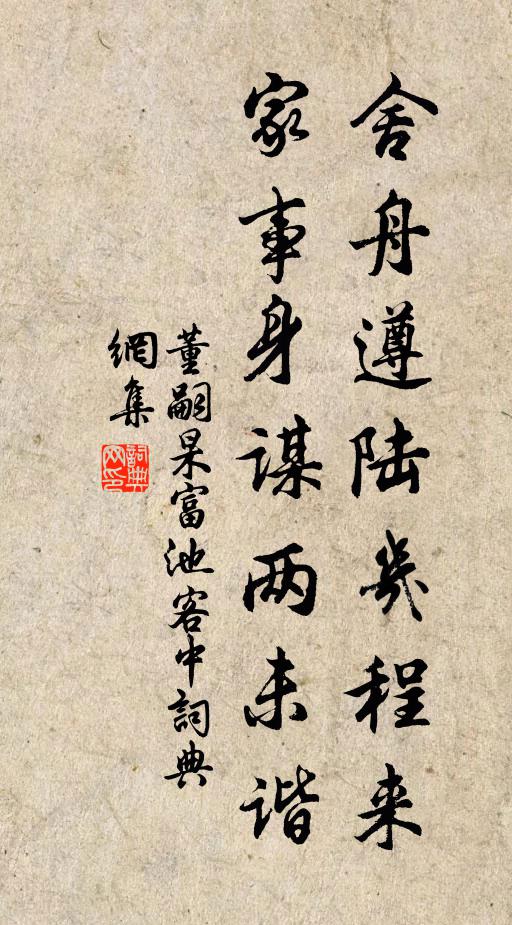 舍舟遵陆几程来
家事身谋两未谐
董嗣杲富池客中詞典
網集
詞典
网印